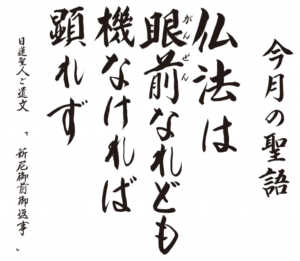 今月の聖語
仏法は
眼前なれども
がんぜん
機なければ
顕れず
日蓮聖人ご遺文 「新尼御前御返事」